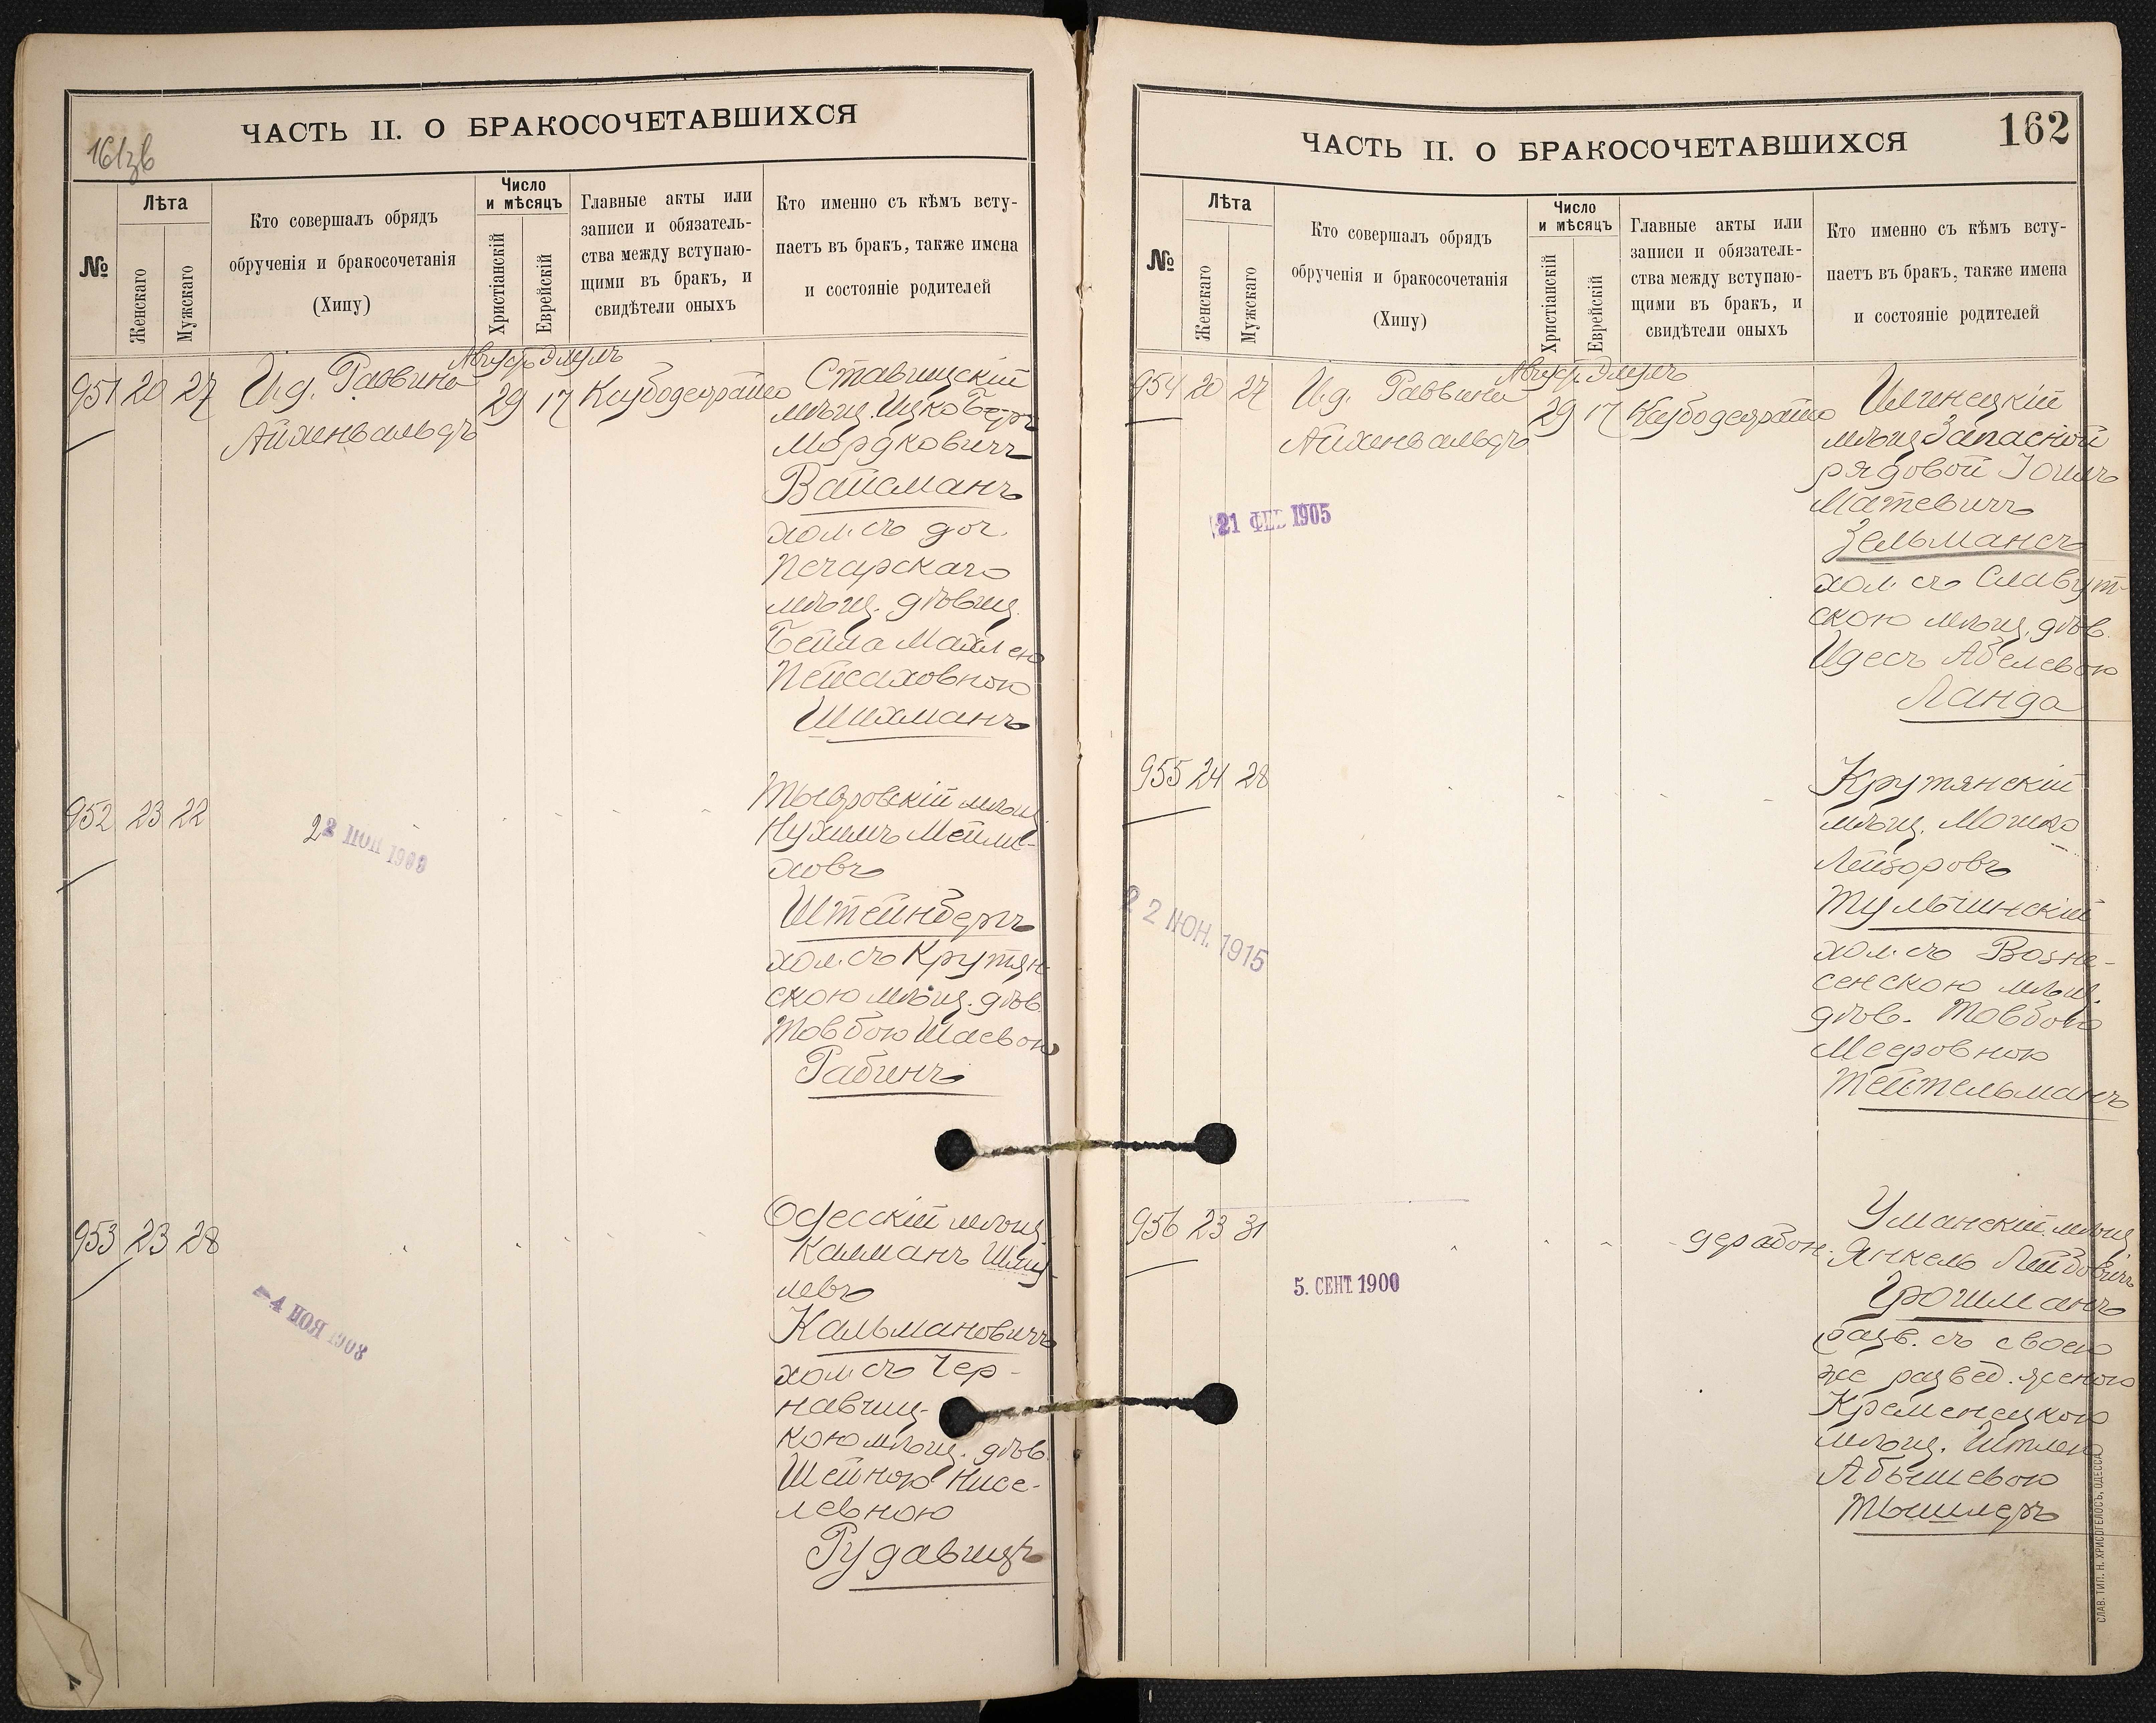 161зв
ЧАСТЬ II. О БРАКОСОЧЕТАВШИХСЯ
№
Лѣта
Женскаго
Мужскаго
Кто совершалъ обрядъ
обрученія и бракосочетанія
(Хипу)
Число
и мѣсяцъ
Христіанскій
Еврейскій
Главные акты или
записи и обязатель-
ства между вступаю-
щими въ бракъ, и
свидѣтели оныхъ
Кто именно съ кѣмъ всту-
паетъ въ бракъ, также имена
и состояніе родителей
951 20 27
И.д. Раввина
Айхенвальдъ
Август. Элулъ
29 17
Ставищскій
мѣщ. Ицко Беръ
Мордковичъ
Вайсманъ
хол. съ доч.
Печарскаго
мѣщ. дѣвиц.
Бейла Махлею
Пейсаховною
Шихманъ
952 23 22
22 НОЯ
Тывровскій мѣщ.
Нухимъ Мейли-
ховъ
Штейнбергъ
хол. съ Крутян-
скою мѣщ. дѣв.
Товбою Шаевою
Рабинъ
953 23 28
-4 НОЯ 1908
Одесскій мѣщ.
Калманъ Шму-
левъ
Кальмановичъ
хол. съ Чер-
навчиц-
кою мѣщ. дѣв.
Шейною Нисе-
левною
Рудавицъ
162
ЧАСТЬ II. О БРАКОСОЧЕТАВШИХСЯ
№
Лѣта
Женскаго
Мужскаго
Кто совершалъ обрядъ
обрученія и бракосочетанія
(Хипу)
Число
и мѣсяцъ
Христіанскій
Еврейскій
Главные акты или
записи и обязатель-
ства между вступаю-
щими въ бракъ, и
свидѣтели оныхъ
Кто именно съ кѣмъ всту-
паетъ въ бракъ, также имена
и состояніе родителей
954 20 27
И.д. Раввина
Айхенвальдъ
Август. Элулъ
29 17
21 ФЕВ 1905
Илинецкій
мѣщ Запасной
рядовой Іоилъ
Матевичъ
Зельмансъ
хол. съ Славут-
скою мѣщ. дѣв.
Идесъ Абелевою
Ланда
955 24 28
22 ІЮН. 1915
Крутянскій
мѣщ. Мошко
Лейзоровъ
Тульчинскій
хол. съ Возне-
сенскою мѣщ.
дѣв. Товбою
Мееровною
Тейтельманъ
956 23 31
5. СЕНТ. 1900
дерабон.
Уманскій мѣщ
Янкель Лейбовичъ
Грошманъ
разв. съ своею
же развед. женою
Кременецкою
мѣщ. Итлею
Абышевою
Тышлеръ
СЛАВ. ТИП. Н. ХРИСОГЕЛОСЪ, ОДЕССА